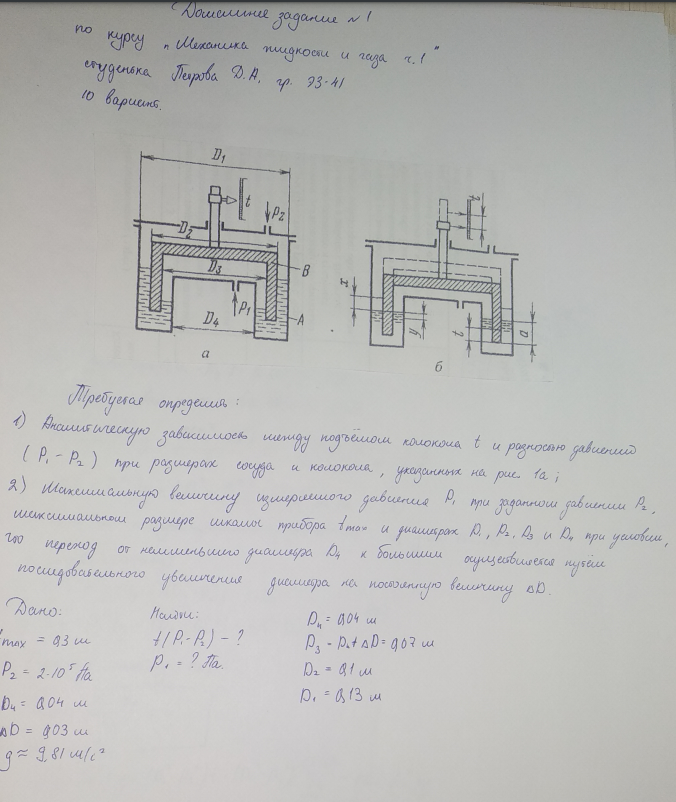 "Домашнее задание №1
по курсу "Механика жидкости и газа ч.1"
студентка Петрова Д.А, гр. ЭЗ-41
10 вариант.
D₁
t
P₂
D₂
D₃
B
P₁
A
D₄
а
t
x
y
t
a
б
Требуется определить:
1) Аналитическую зависимость между подъёмом колокола t и разностью давлений
(P₁ - P₂) при размерах сосуда и колокола, указанных на рис. 1а;
2) Максимальную величину измеряемого давления P₁ при заданном давлении P₂,
максимальном размере шкалы прибора tmax и диаметрах D₁, D₂, D₃ и D₄ при условии,
что переход от наименьшего диаметра D₄ к большим осуществляется путём
последовательного увеличения диаметра на постоянную величину ΔD.
Дано: Найти: D₄ = 0,04 м
tmax = 0,3 м t(P₁-P₂) - ? D₃ = D₄ + ΔD = 0,07 м
P₂ = 2·10⁵ Па P₁ = ? Па. D₂ = 0,1 м
D₄ = 0,04 м D₁ = 0,13 м
ΔD = 0,03 м
g ≈ 9,81 м/с²